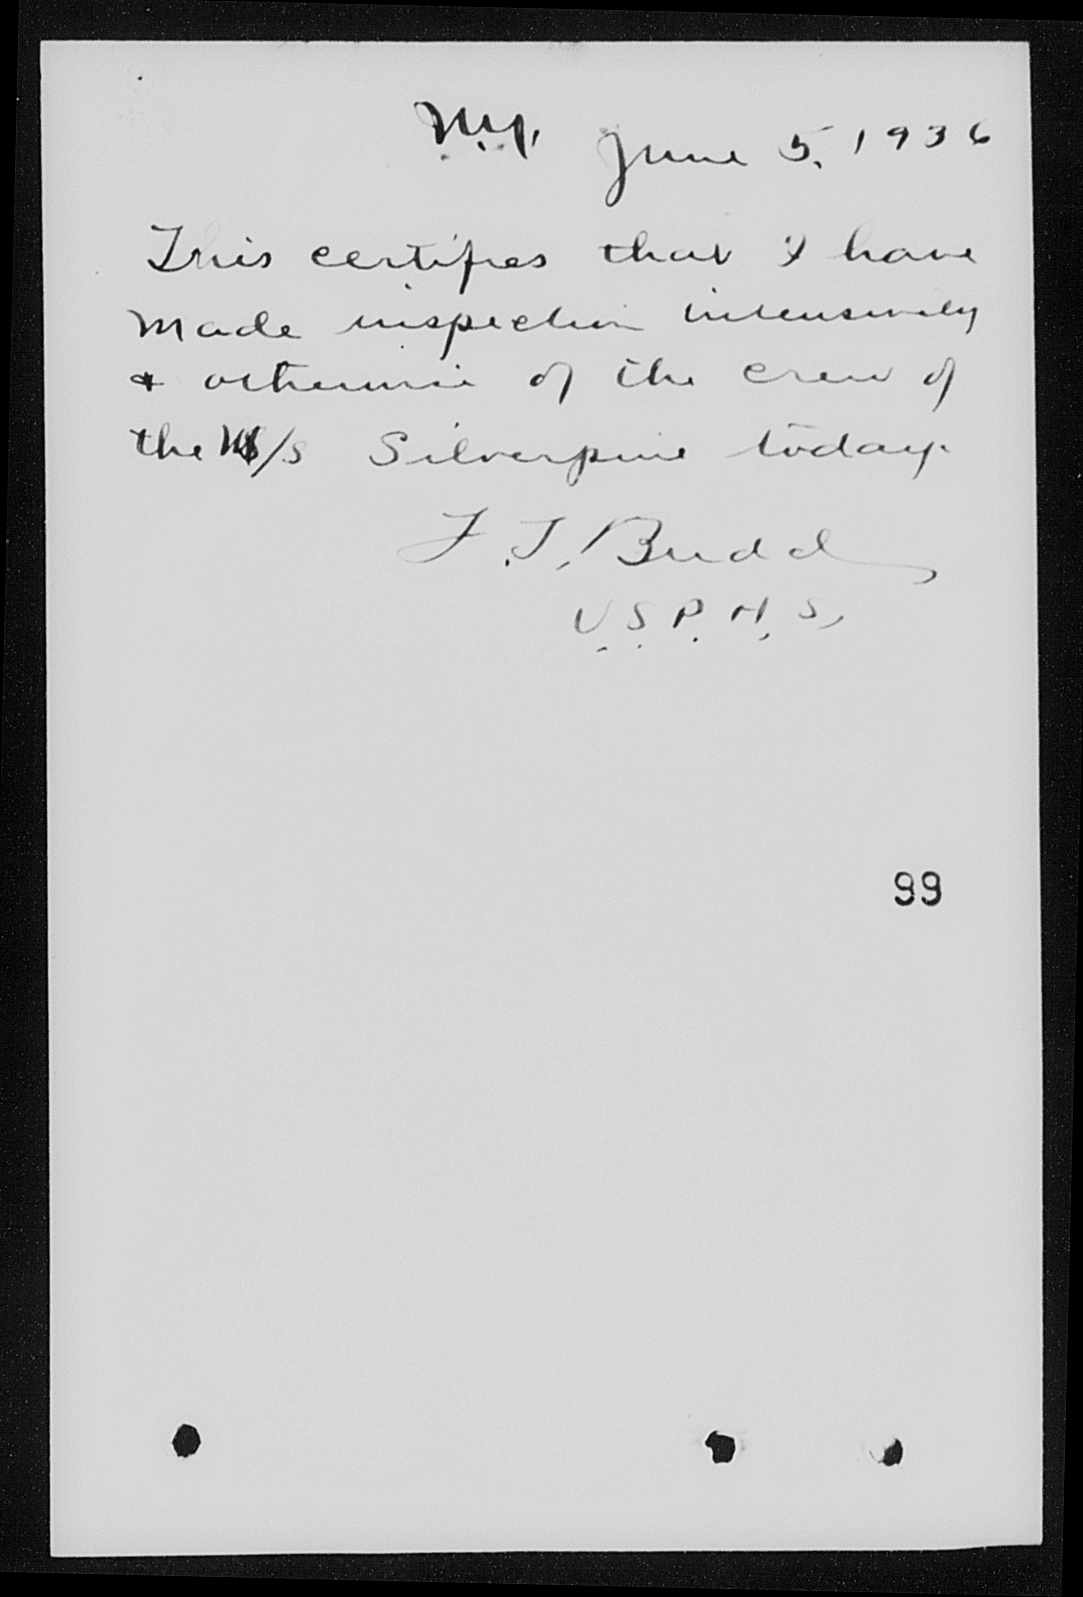 N.Y. June 5, 1936
This certifies that I have
made inspection intensively
& otherwise of the crew of
the M/S Silverpine today.
F. J. Budd
U.S.P.H.S.
99